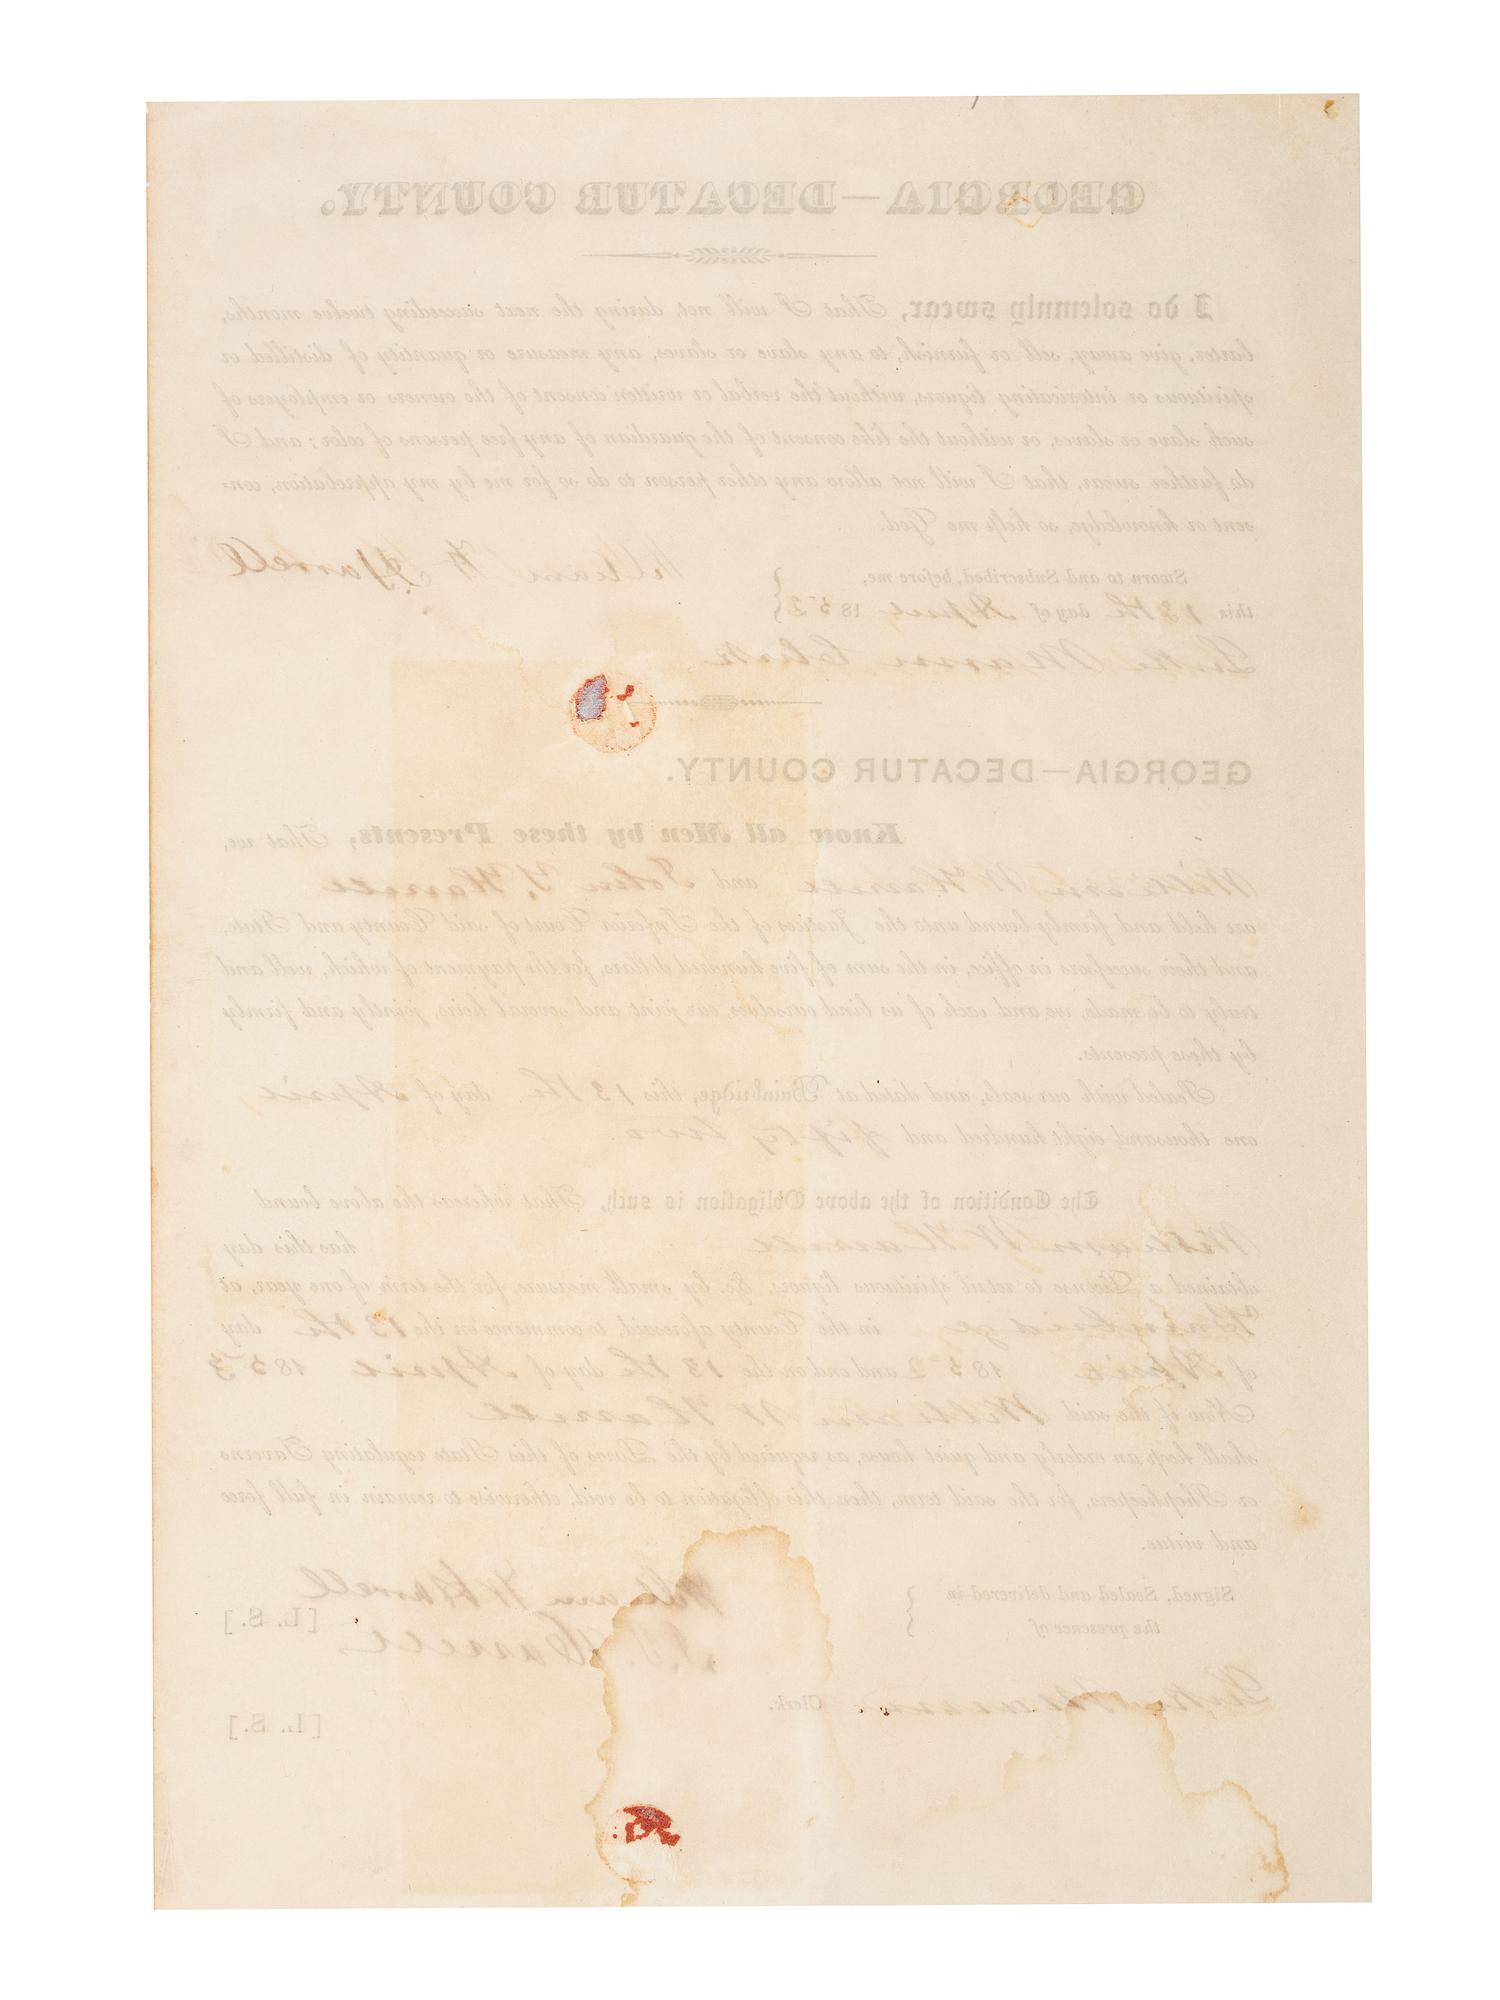 GEORGIA—DECATUR COUNTY.
I do solemnly swear, That I will not, during the next succeeding twelve months,
barter, give away, sell or furnish, to any slave or slaves, any measure or quantity of distilled or
spirituous or intoxicating liquors, without the verbal or written consent of the owners or employers of
such slave or slaves, or without the like consent of the guardian of any free persons of color; and I
do further swear, that I will not allow any other person to do so for me by my approbation, con-
sent or knowledge, so help me God.
William W Harrell
Sworn to and Subscribed, before me,
this 13th day of April 1852
Mann Clerk
GEORGIA—DECATUR COUNTY.
Know all Men by these Presents, That we,
William W Harrell and John Y. Harrell
are held and firmly bound unto the Justices of the Inferior Court of said County and State,
and their successors in office, in the sum of five hundred dollars, for the payment of which, well and
truly to be made, we and each of us bind ourselves, our joint and several heirs, jointly and firmly
by these presents.
Sealed with our seals, and dated at Bainbridge, this 13th day of April,
one thousand eight hundred and fifty two
The Condition of the above Obligation is such, That whereas the above bound
William W Harrell has this day
obtained a License to retail spirituous liquors, &c. by small measure, for the term of one year, at
Bainbridge in the County aforesaid, to commence on the 13th day
of April 1852 and end on the 13th day of April 1853
Now if the said William W Harrell
shall keep an orderly and quiet house, as required by the Laws of this State regulating Taverns
or Shopkeepers, for the said term, then this obligation to be void, otherwise to remain in full force
and virtue.
Signed, Sealed and delivered in
the presence of
William W Harrell [L. S.]
Harrell
Clerk.
[L. S.]